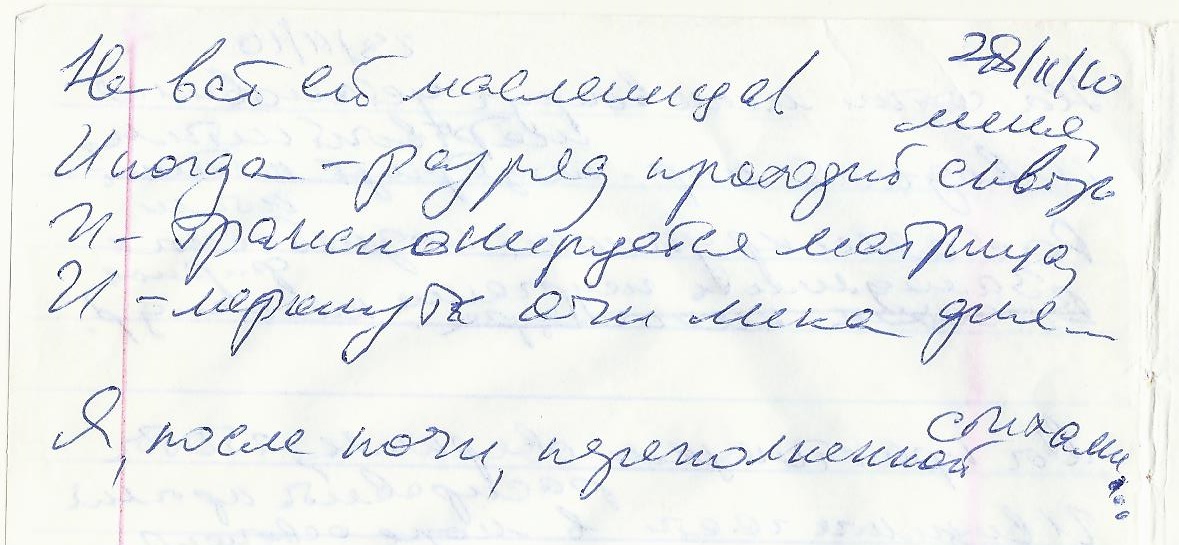 28/II/10
Не всё ей масленица
Иногда – разряд проходит сквозь меня,
И – транспонируется матрица,
И – меркнут очи лика дня...
Я, после ночи, переполненной стихами...